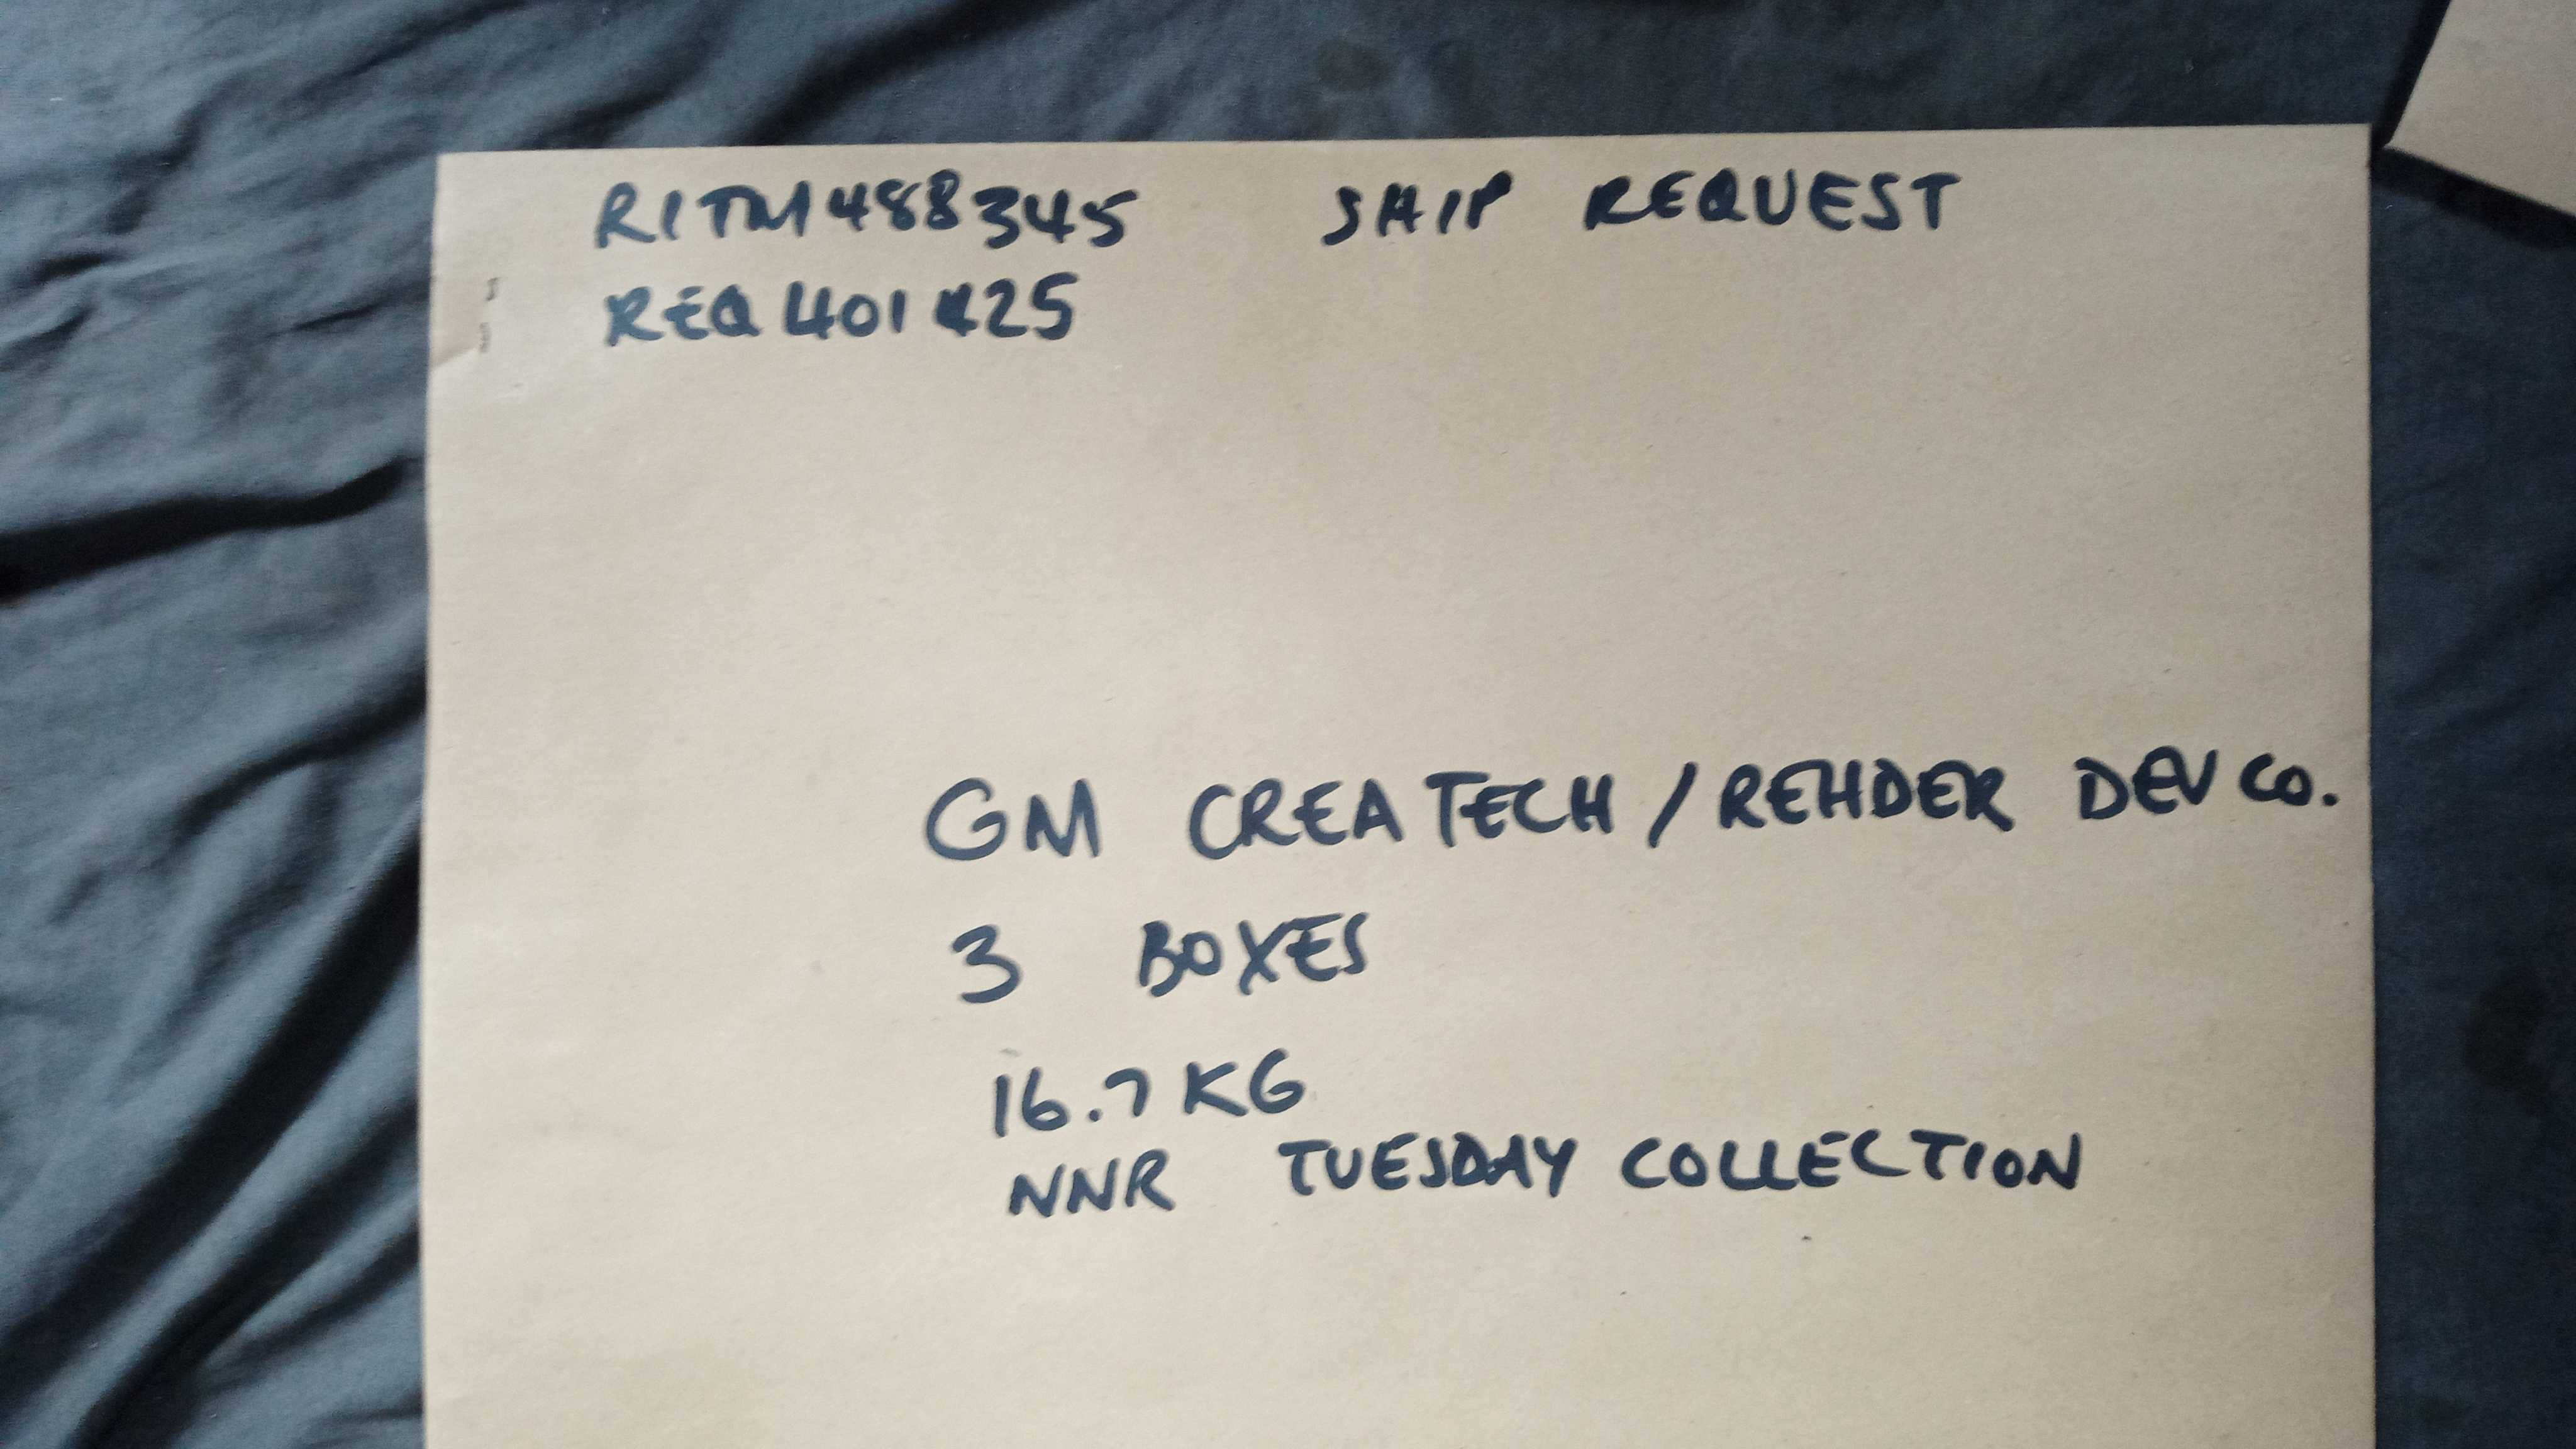 RITM488345 SHIP REQUEST
REQ401425
GM CREATECH / REHDER DEV CO.
3 BOXES
16.7 KG
NNR TUESDAY COLLECTION